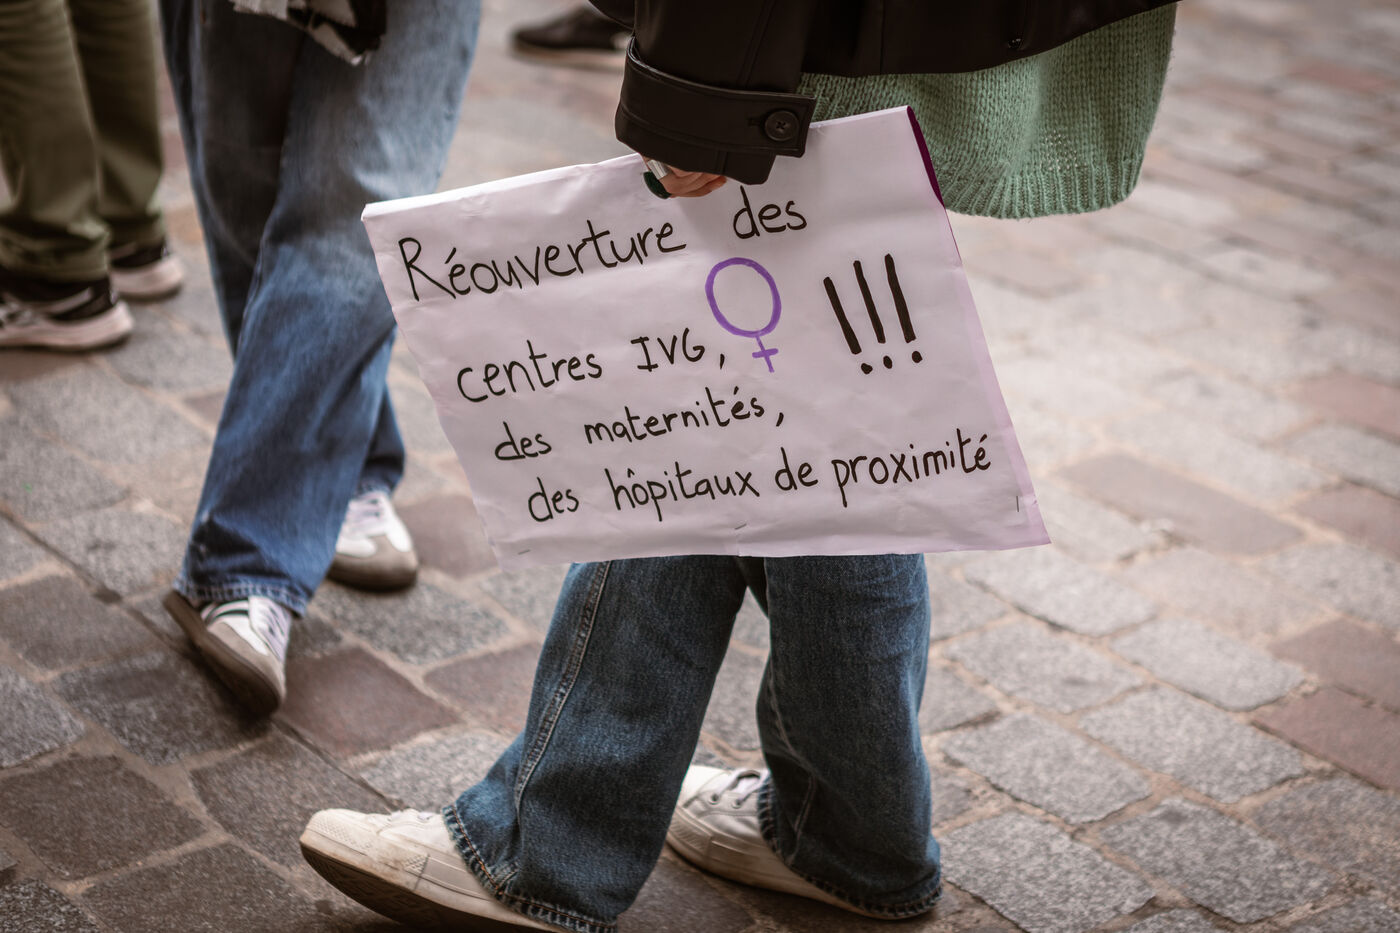 Réouverture des
centres IVG, ♀ !!!
des maternités,
des hôpitaux de proximité